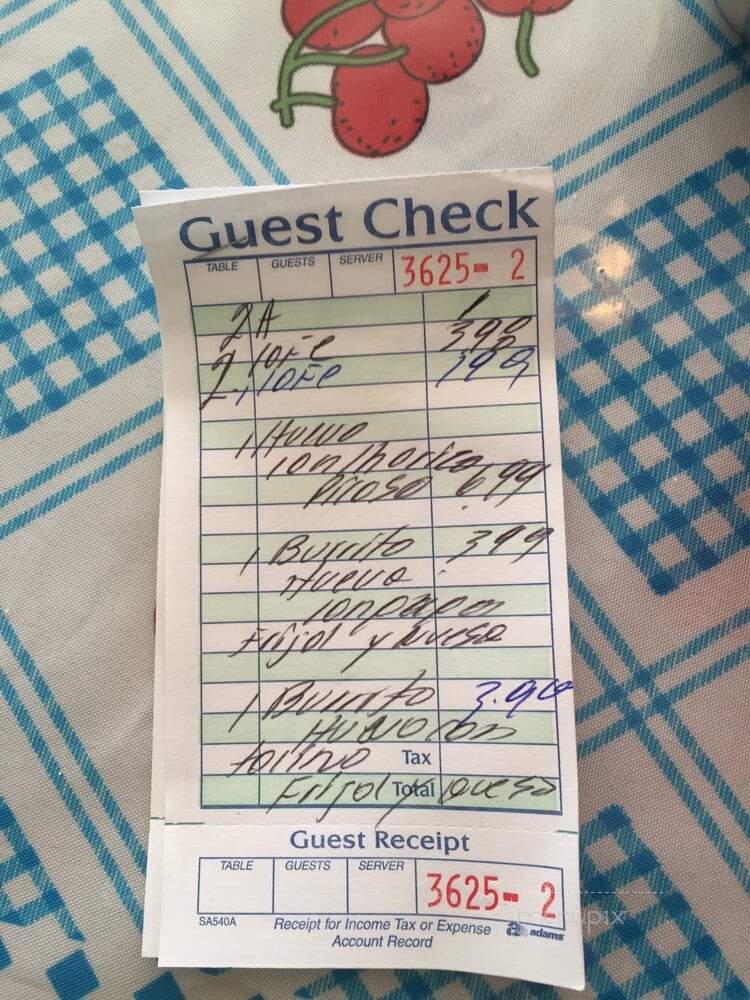 Guest Check
TABLE GUESTS SERVER 3625- 2
2 A
2
1 Huevo
picoso 6.99
1 Burrito 3.99
Huevo
con papa
Frijol y queso
1 Burrito 3.99
Huevo con
torino Tax
Frijol y queso Total
Guest Receipt
TABLE GUESTS SERVER 3625- 2
SA540A Receipt for Income Tax or Expense
Account Record
adams
menupix